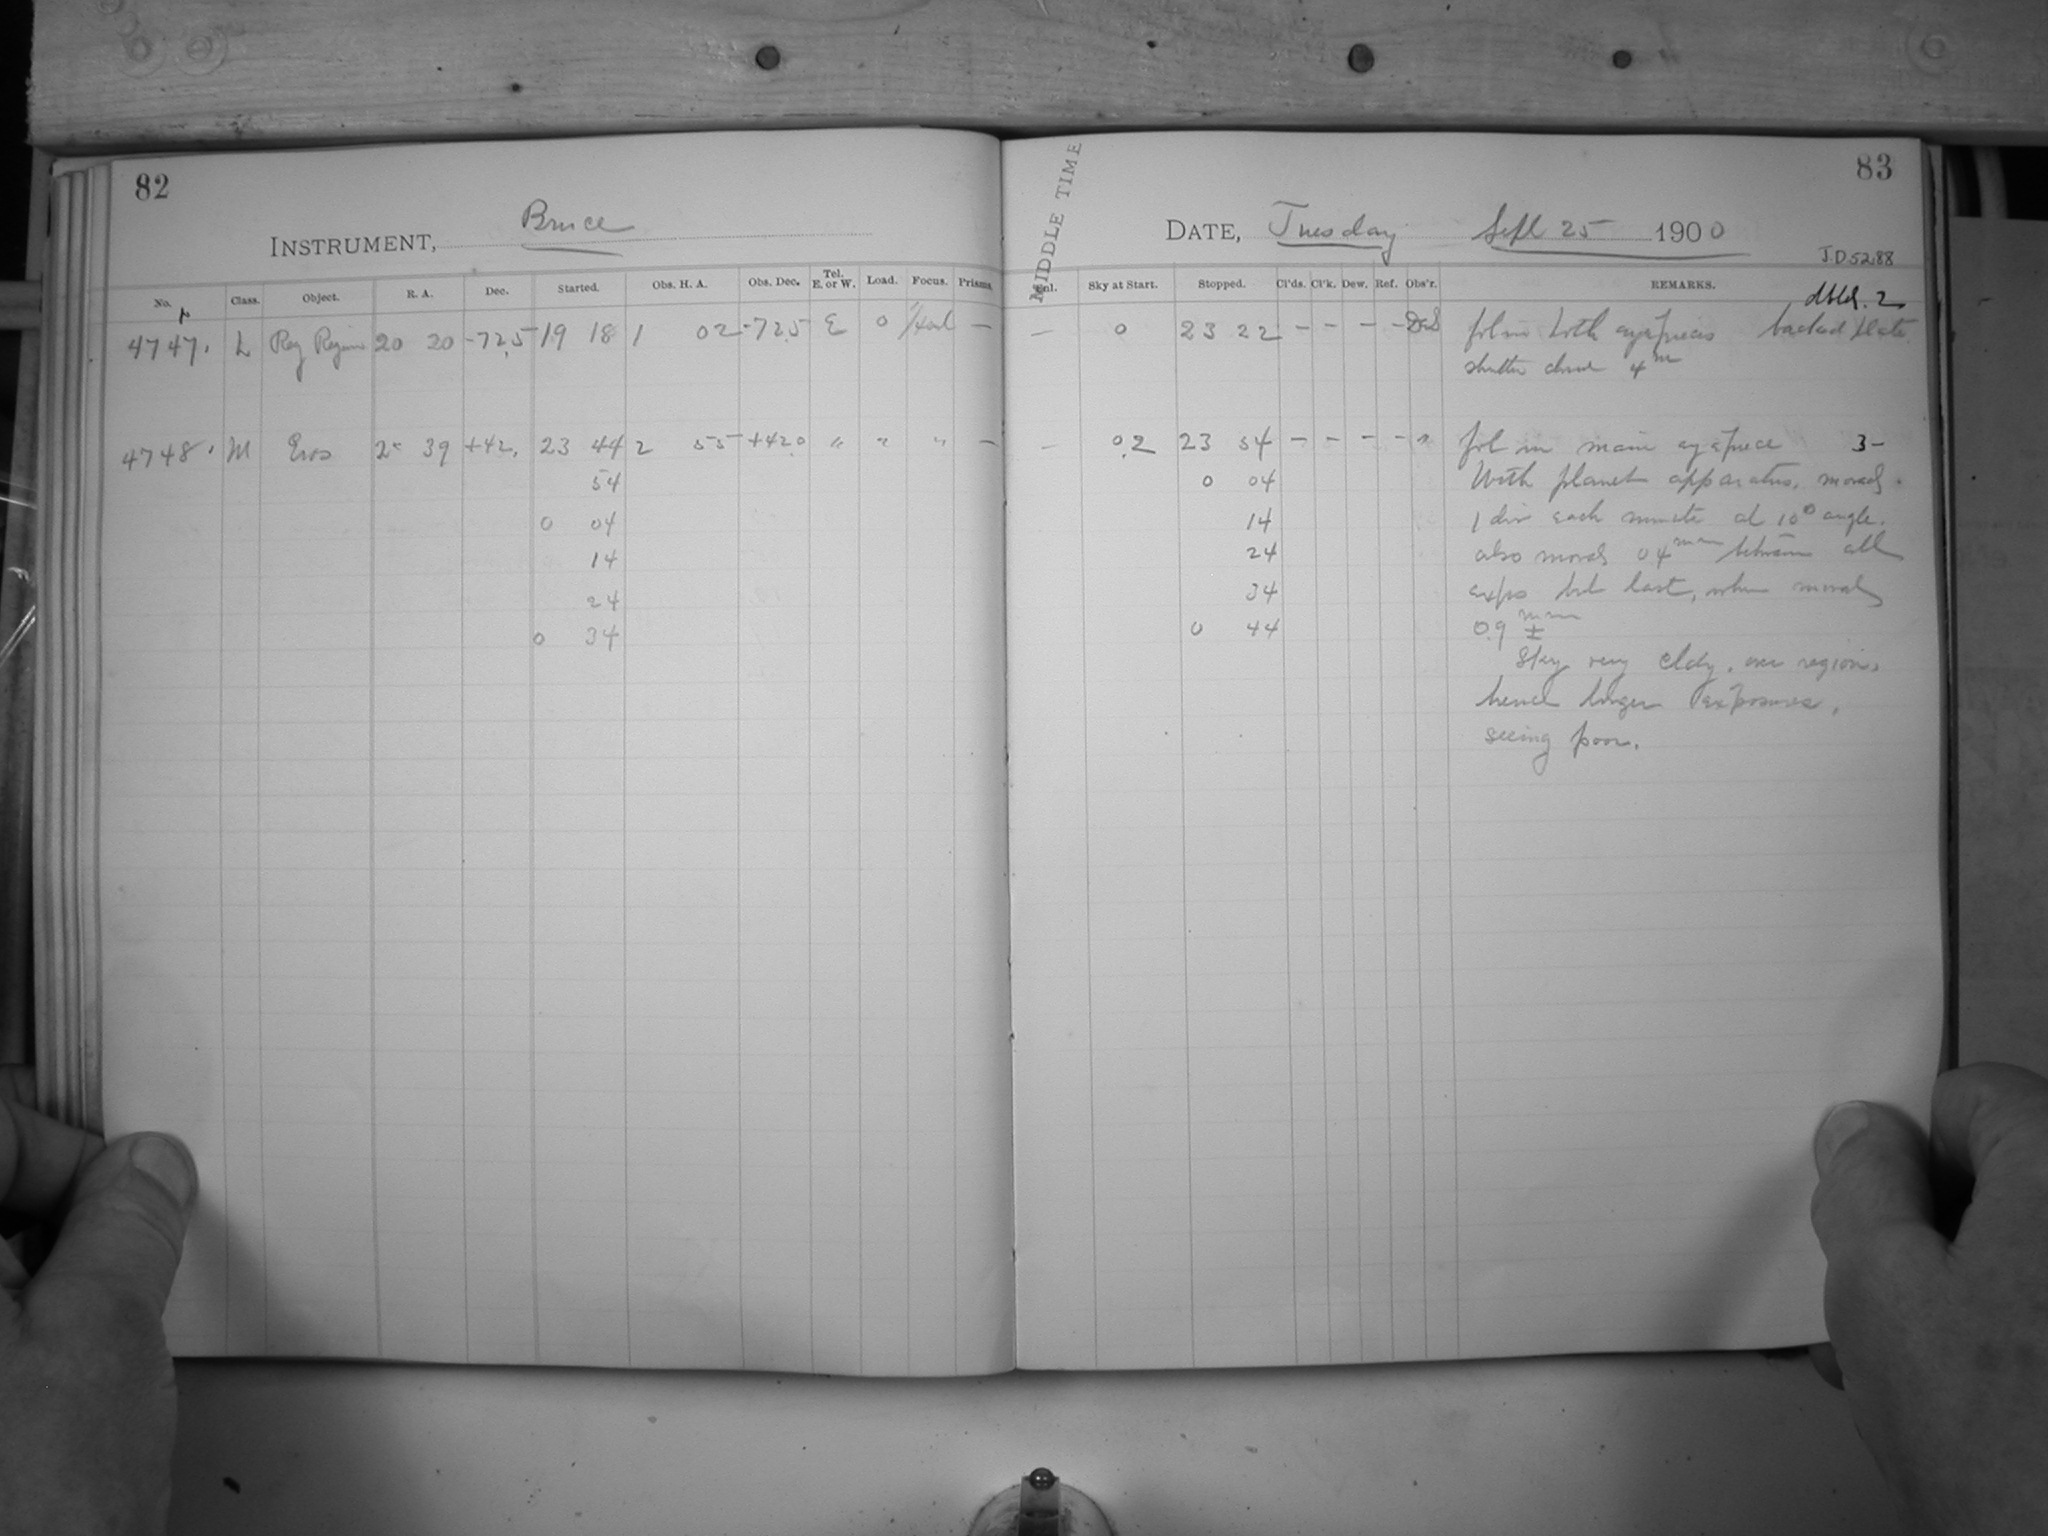 82
INSTRUMENT, Bruce
No. Class. Object. R. A. Dec. Started. Obs. H. A. Obs. Dec. Tel. E. or W. Load. Focus. Prisms.
4747. L Reg 20 20 -72.5 19 18 1 02 -72.5 E 0 —
4748. M Eros 2 39 +42. 23 44 2 55 +42.0 " " " —
54
0 04
14
24
0 34
MIDDLE TIME
83
DATE, Tuesday Sept 25 1900
J.D 5288
Enl. Sky at Start. Stopped. Cl'ds. Cl'k. Dew. Ref. Obs'r. REMARKS.
dbld. 2
— 0 23 22 – – – – fol in both eyepieces backed plate
shutter closed 4 m
— 0.2 23 54 – – – – " fol in main eyepiece 3-
0 04 With planet apparatus, moved
14 1 div each minute at 10° angle.
24 also moved 04 mm between all
34 exps but last, when moved
0 44 0.9 mm ±
Sky very cldy. over region,
hence longer exposures,
seeing poor.